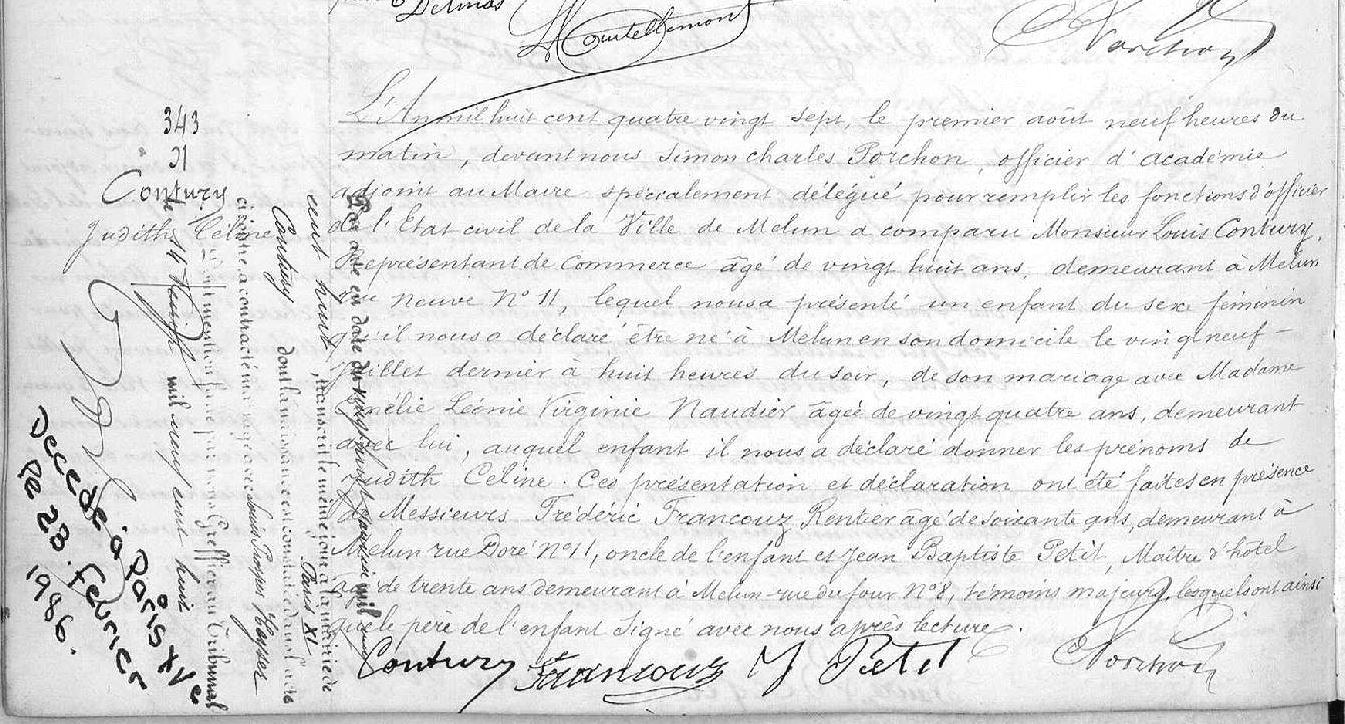 Delmas
343
21
Contury
Judith Céline
L'An mil huit cent quatre vingt sept, le premier août neuf heures du
matin, devant nous Simon Charles Porchon, officier d'académie
adjoint au Maire spécialement délégué pour remplir les fonctions d'officier
de l'Etat civil de la Ville de Melun a comparu Monsieur Louis Contury,
Représentant de Commerce âgé de vingt huit ans, demeurant à Melun
rue neuve N° 11, lequel nous a présenté un enfant du sexe féminin
qu'il nous a déclaré être né à Melun en son domicile le vingt neuf
juillet dernier à huit heures du soir, de son mariage avec Madame
Amélie Léonie Virginie Naudier âgée de vingt quatre ans, demeurant
avec lui, auquel enfant il nous a déclaré donner les prénoms de
Judith Céline. Ces présentation et déclaration ont été faites en présence
de Messieurs Frédéric Francouz, Rentier âgé de soixante ans, demeurant à
Melun rue Doré N° 11, oncle de l'enfant et Jean Baptiste Petit, Maître d'hôtel
âgé de trente ans demeurant à Melun rue du four N° 8, témoins majeurs, lesquels ont ainsi
que le père de l'enfant signé avec nous après lecture.
Contury Francouz J Petit Porchon
Par acte en date du
mil
cent huit, transcrit le même jour à la mairie de
Paris XI
Contury dont la
le 14
mil neuf cent huit
Greffier au Tribunal
Décédé à Paris XVe
le 28 Février
1986.